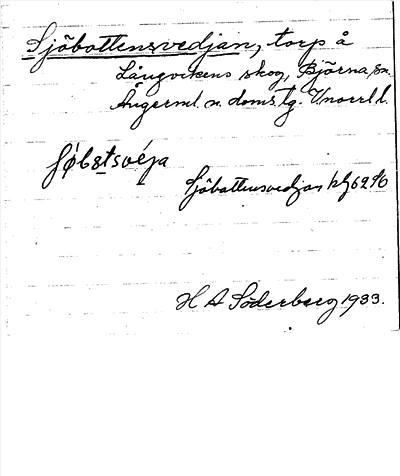 Sjöbottensvedjan, torp å
Långvikens skog, Björna sn.
Ångerml. n. doms.tg. V.norrl l.
Sjöbottensvedjan kb 62 96
H A Söderberg 1933.